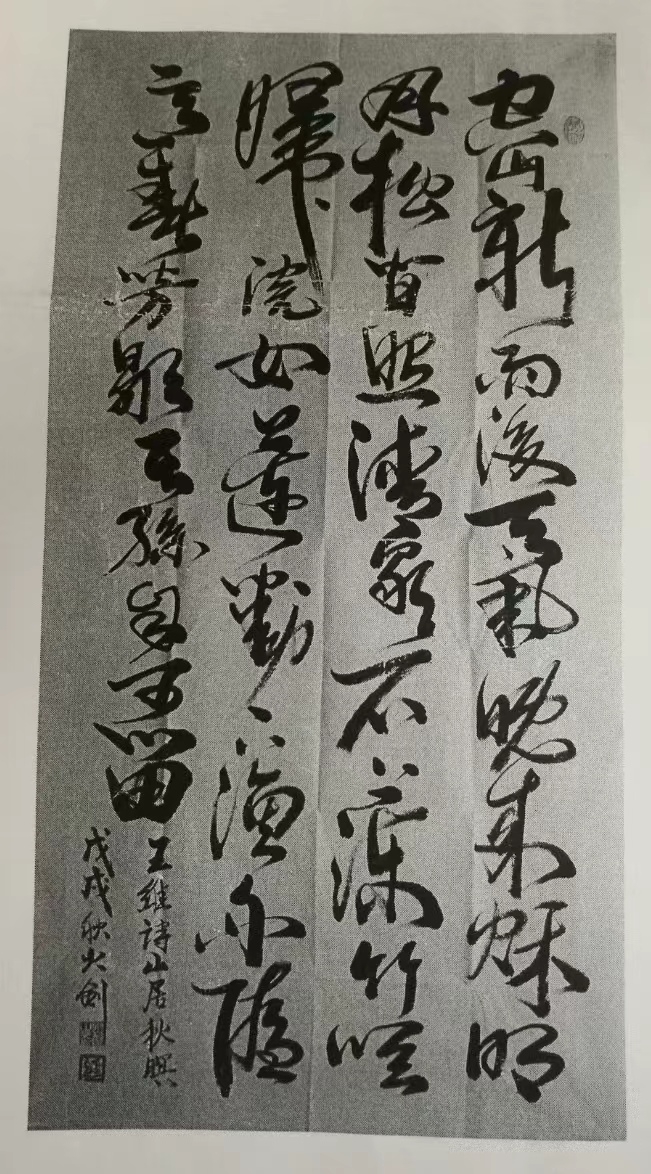 空山新雨後天氣晚來秌明
月松間照清泉石上流竹喧
歸浣女蓮動下漁舟隨
意春芳歇王孫自可留
王維詩山居秋暝
戊戌秋